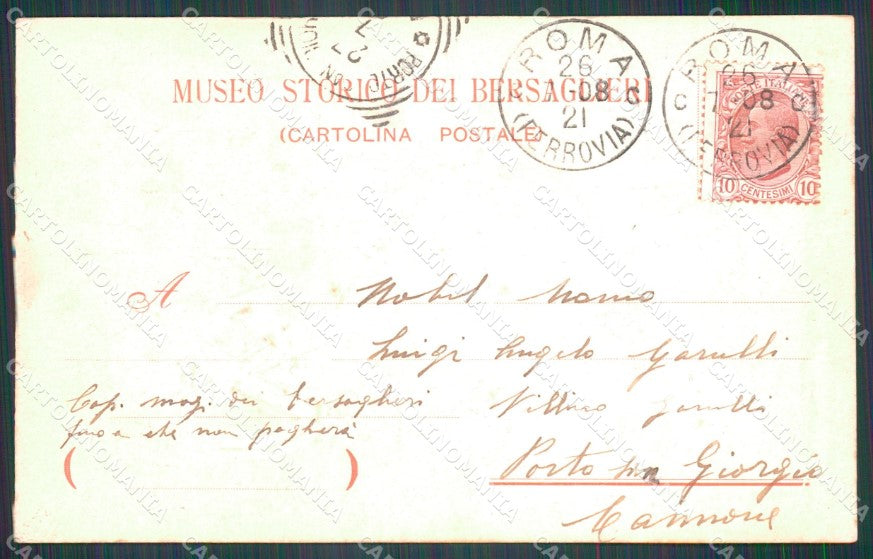 MUSEO STORICO DEI BERSAGLIERI
(CARTOLINA POSTALE)
ROMA
26
7-08
21
(FERROVIA)
ROMA
26
7-08
21
(FERROVIA)
POSTE ITALIANE
10 CENTESIMI 10
A Nobil Uomo
Luigi Angelo
Villino
Porto San Giorgio
Cap. mag. dei bersaglieri
fino a che non pagherà
( )
CARTOLINOMANIA